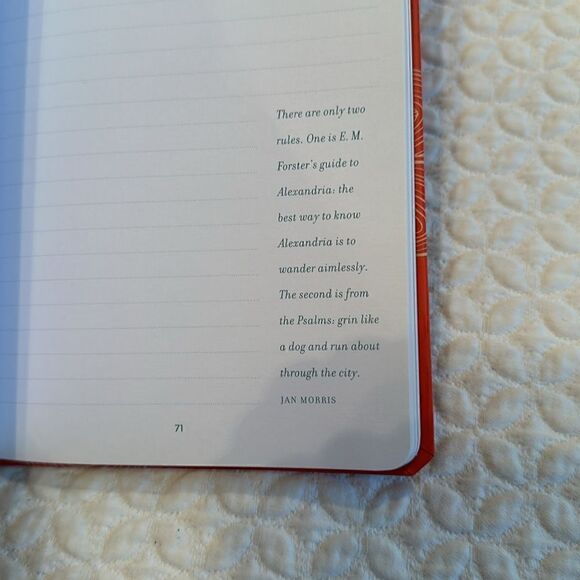 There are only two
rules. One is E. M.
Forster's guide to
Alexandria: the
best way to know
Alexandria is to
wander aimlessly.
The second is from
the Psalms: grin like
a dog and run about
through the city.
JAN MORRIS
71